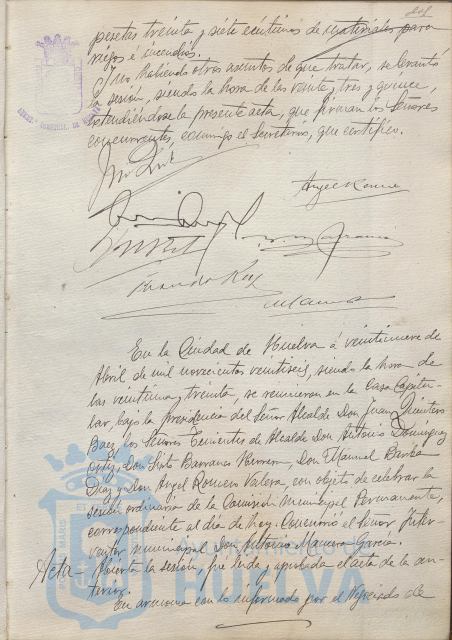 pesetas treinta y siete céntimos de materiales para
riegos é incendios.
Y no habiendo otros asuntos de que tratar, se levantó
la sesión, siendo la hora de las veinte, tres y quince,
extendiéndose la presente acta, que firman los Señores
concurrentes, conmigo el secretario, que certifico.
Angel Romeu
Fernando Rey
En la Ciudad de Huelva á veintinueve de
Abril de mil novecientos veintiseis, siendo la hora de
las veintiuna, treinta, se reunieron en la Casa Capitu-
lar, bajo la presidencia del Señor Alcalde Don Juan Quintero
Baez, los Señores Tenientes de Alcalde Don Antonio Dominguez
Ortiz, Don Sixto Barranco Herrera, Don Manuel Barba
Diaz y Don Angel Romeu Valera, con objeto de celebrar la
sesión ordinaria de la Comisión Municipal Permanente,
correspondiente al día de hoy. Concurrió el Señor Inter-
ventor municipal Don Antonio Garcia.
Acta. Abierta la sesión, fue leida y aprobada el acta de la an-
terior.
En armonia con lo informado por el Negociado de
Ayuntamiento de
HUELVA